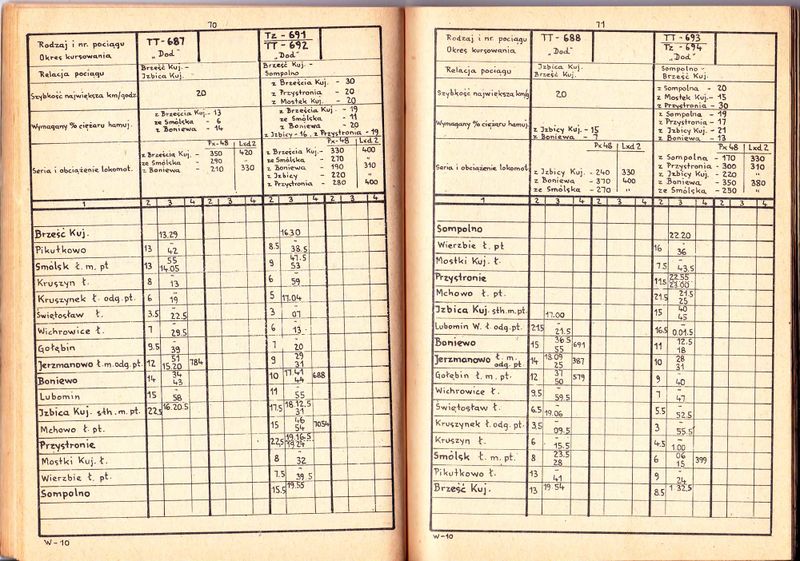 70
Rodzaj i nr. pociągu TT-687 Tz-691
TT-692
Okres kursowania „Dod” „Dod”
Relacja pociągu Brześć Kuj.- Izbica Kuj. Brześć Kuj.- Sompolno
Szybkość największa km/godz. 20 z Brześcia Kuj. - 30
z Przystronia - 20
z Mostek Kuj. - 20
Wymagany % ciężaru hamuj. z Brześcia Kuj.- 13 z Brześcia Kuj. - 19
ze Smólska - 6 ze Smólska - 11
z Boniewa - 14 z Boniewa - 20
z Izbicy-16, z Przystronia-19
Px-48 Lxd2 Px-48 Lxd.2
Seria i obciążenie lokomot. z Brześcia Kuj. - 350 420 z Brześcia Kuj.- 330 400
ze Smólska - 290 - ze Smólska - 270 "
z Boniewa - 210 330 z Boniewa - 190 310
z Izbicy - 220 "
z Przystronia - 280 400
1 2 3 4 2 3 4 2 3 4 2 3 4
Brześć Kuj. 13.29 16.30
Pikutkowo 13 - 42 8.5 - 38.5
Smólsk ł. m. pt 13 55 14.05 9 47.5 53
Kruszyn ł. 8 - 13 6 - 59
Kruszynek ł. odg. pt. 6 - 19 5 - 17.04
Świętosław ł. 3.5 - 22.5 3 - 07
Wichrowice ł. 7 - 29.5 6 - 13
Gołębin 9.5 - 39 7 - 20
Jerzmanowo ł.m.odg pt. 12 51 15.20 784 9 29 31
Boniewo 14 34 43 10 17.41 44 688
Lubomin 15 - 58 11 - 55
Izbica Kuj. sth. m. pt 22.5 16.20.5 17.5 18.12.5 31
Mchowo ł. pt. 15 46 54 7054
Przystronie 22.5 19.16.5 19.24
Mostki Kuj. ł. 8 - 32
Wierzbie ł. pt. 7.5 - 39.5
Sompolno 15.5 19.55
W-10
71
Rodzaj i nr. pociągu TT-688 TT-693
Tz-694
Okres kursowania „Dod” „Dod”
Relacja pociągu Izbica Kuj. Brześć Kuj. Sompolno - Brześć Kuj.
Szybkość największa km/g 20 z Sompolna - 20
z Mostek Kuj. - 15
z Przystronia - 30
Wymagany % ciężaru hamuj. z Sompolna - 19
z Przystronia - 17
z Izbicy Kuj. - 15 z Izbicy Kuj. - 21
z Boniewa - 7 z Boniewa - 13
Px48 Lxd2 Px-48 Lxd 2
Seria i obciążenie lokomot. z Sompolna - 170 330
z Przystronia - 300 310
z Izbicy Kuj. - 240 330 z Izbicy Kuj. - 220 "
z Boniewa - 370 400 z Boniewa - 350 380
ze Smólska - 270 " ze Smólska - 230 "
1 2 3 4 2 3 4 2 3 4 2 3 4
Sompolno 22.20
Wierzbie ł. pt 16 - 36
Mostki Kuj. ł. 7.5 - 43.5
Przystronie 11.5 22.55 23.00
Mchowo ł. pt. 21.5 21.5 25
Izbica Kuj. sth.m.pt 17.00 15 40 45
Lubomin W. ł. odg. pt. 21.5 - 21.5 16.5 - 0.01.5
Boniewo 15 36.5 55 691 11 12.5 18
Jerzmanowo ł. m. odg. pt. 14 18.09 25 387 10 28 31
Gołębin ł. m. pt. 12 37 50 579 9 - 40
Wichrowice ł. 9.5 - 59.5 7 - 47
Świętosław ł. 6.5 - 19.06 5.5 - 52.5
Kruszynek ł.odg.pt. 3.5 - 09.5 3 - 55.5
Kruszyn ł. 6 - 15.5 4.5 - 1.00
Smólsk ł. m. pt. 8 23.5 28 6 06 15 399
Pikutkowo ł. 13 - 41 9 - 24
Brześć Kuj. 13 19 54 8.5 1 32.5
W-10